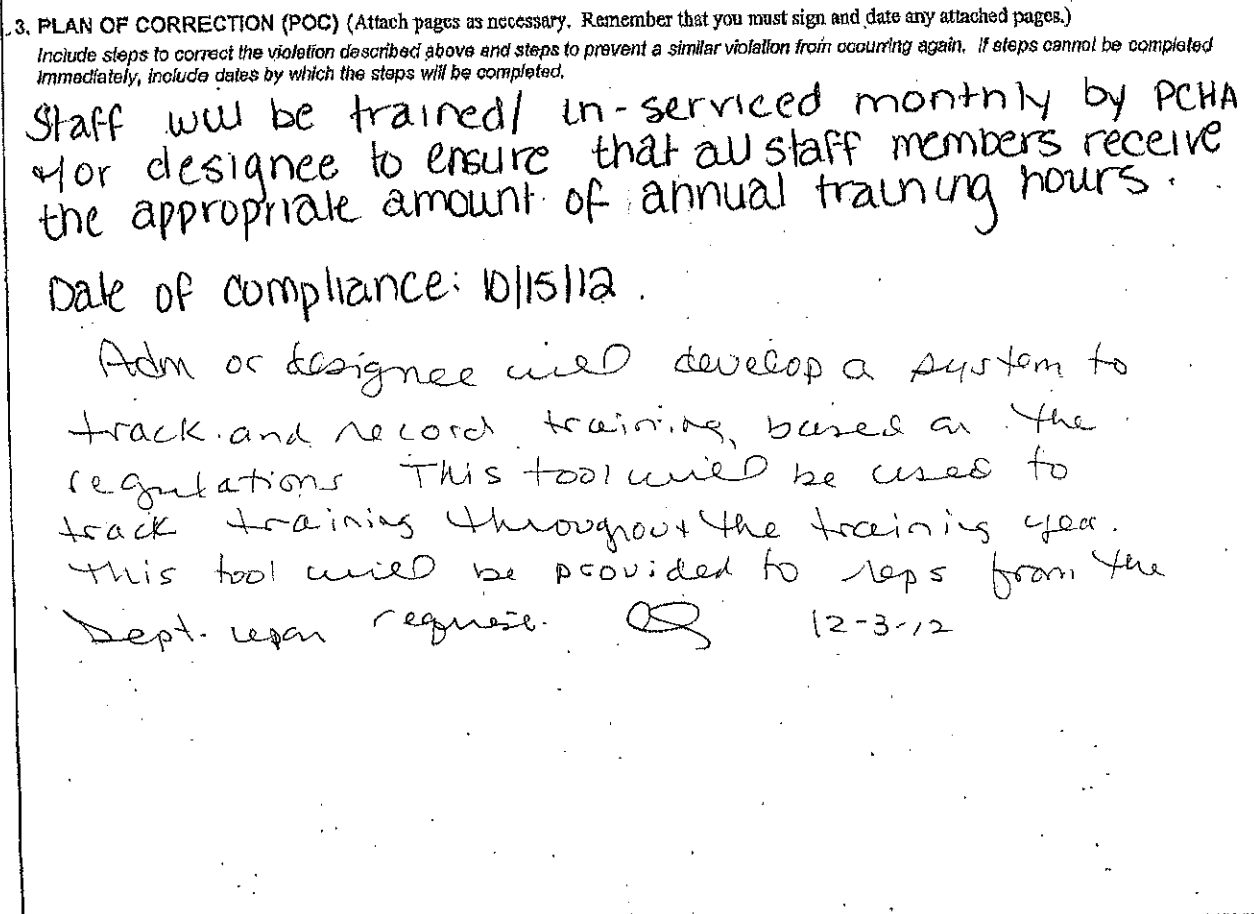 3. PLAN OF CORRECTION (POC) (Attach pages as necessary. Remember that you must sign and date any attached pages.)
Include steps to correct the violation described above and steps to prevent a similar violation from occurring again. If steps cannot be completed
immediately, include dates by which the steps will be completed.
Staff will be trained/ in-serviced monthly by PCHA
&/or designee to ensure that all staff members receive
the appropriate amount of annual training hours.
Date of compliance: 10/15/12.
Adm or designee will develop a system to
track and record training based on the
regulations This tool will be used to
track training throughout the training year.
This tool will be provided to reps from the
Dept. upon request. 12-3-12